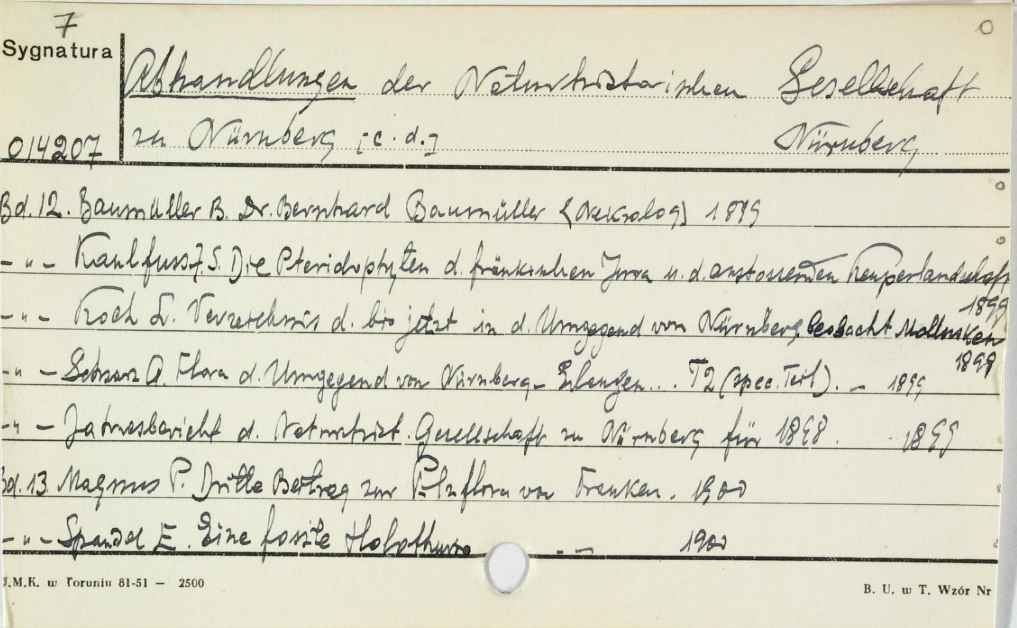 7
Sygnatura
Abhandlungen der Naturhistorischen Gesellschaft
014207 zu Nürnberg [c.d.] Nürnberg
Bd. 12. Baumüller B. Dr. Bernhard Baumüller [Nekrolog] 1899
- " - Kaulfuss J. S. Die Pteridophyten d. fränkischen Jura u. d. anstossenden Keuperlandschaft
1899
- " - Koch L. Verzeichnis d. bis jetzt in d. Umgegend von Nürnberg beobacht Mollusken
1899
- " - Schwarz A. Flora d. Umgegend von Nürnberg - Erlangen... T2 (spec. Teil). - 1899
- " - Jahresbericht d. Naturhist. Gesellschaft zu Nürnberg für 1898. 1899
Bd. 13. Magnus P. Dritte Beitrag zur Pilzflora von Franken. 1900
- " - Spandel E. Eine fossile 1900
J.M.K. w Toruniu 81-51 — 2500
B. U. w T. Wzór Nr